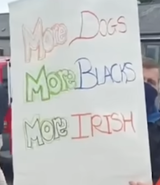 More DOGS
More BLACKS
More IRISH